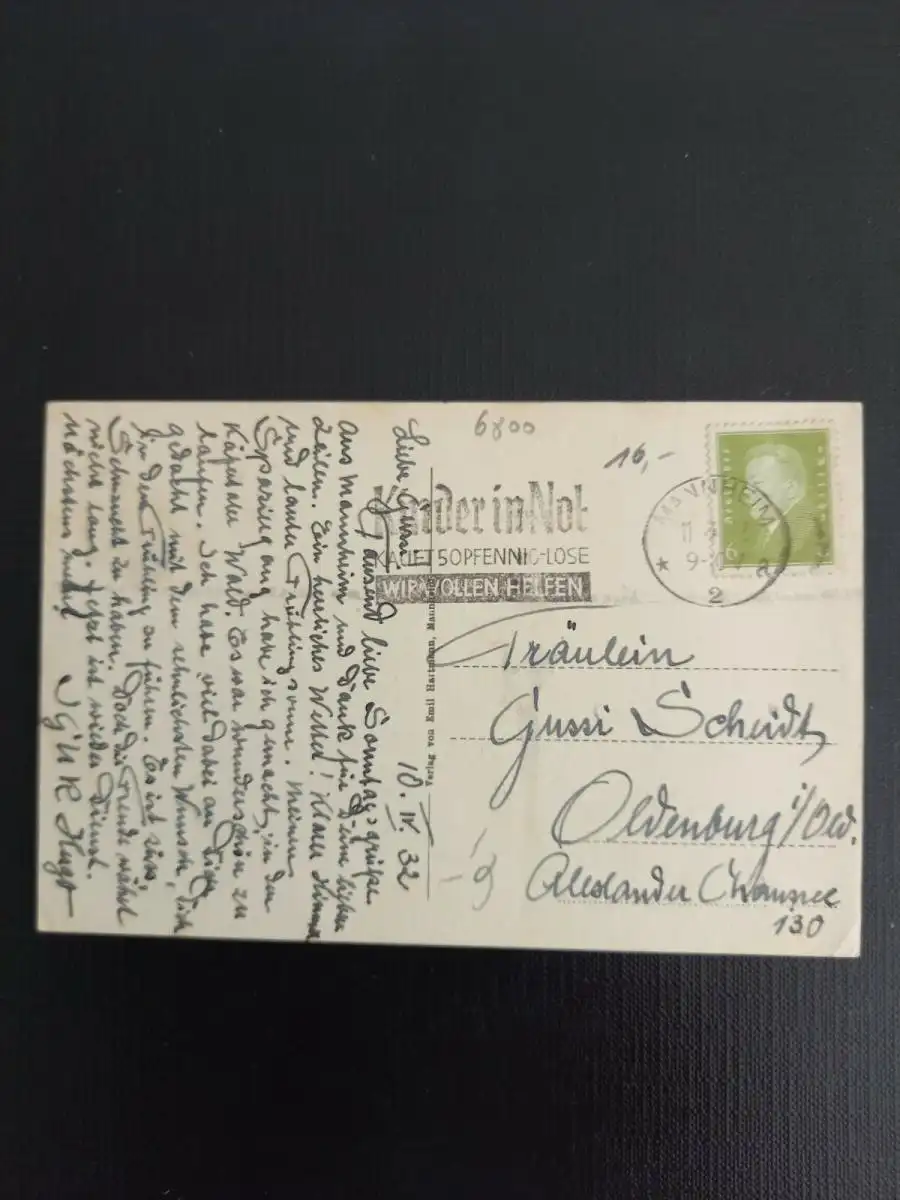 10. IV. 32
Liebe Gussi!
Tausend liebe Sonntagsgrüße
aus Mannheim und Dank für Deine lieben
Zeilen. Ein herrliches Wetter! Klarer Himmel
und laute Frühlingssonne. Meinen
Spaziergang habe ich gemacht, in den
Käfertaler Wald. Es war wunderschön zu
laufen. Ich habe viel dabei an Dich
gedacht mit dem sehnlichsten Wunsch, Dich
in den Frühling zu führen. Es ist süss,
Sehnsucht zu haben. Doch die Freude währt
nicht lang, jetzt ist wieder Dienst.
Nächstens mehr!
Hugo
Verlag von Emil Hartmann,
6800
16,-
Kinder in Not
KAUFT 50PFENNIG-LOSE
WIR WOLLEN HELFEN
MANNHEIM
2
a
Fräulein
Gussi Scheidt
Oldenburg i/Old.
Alexander Chaussee
130